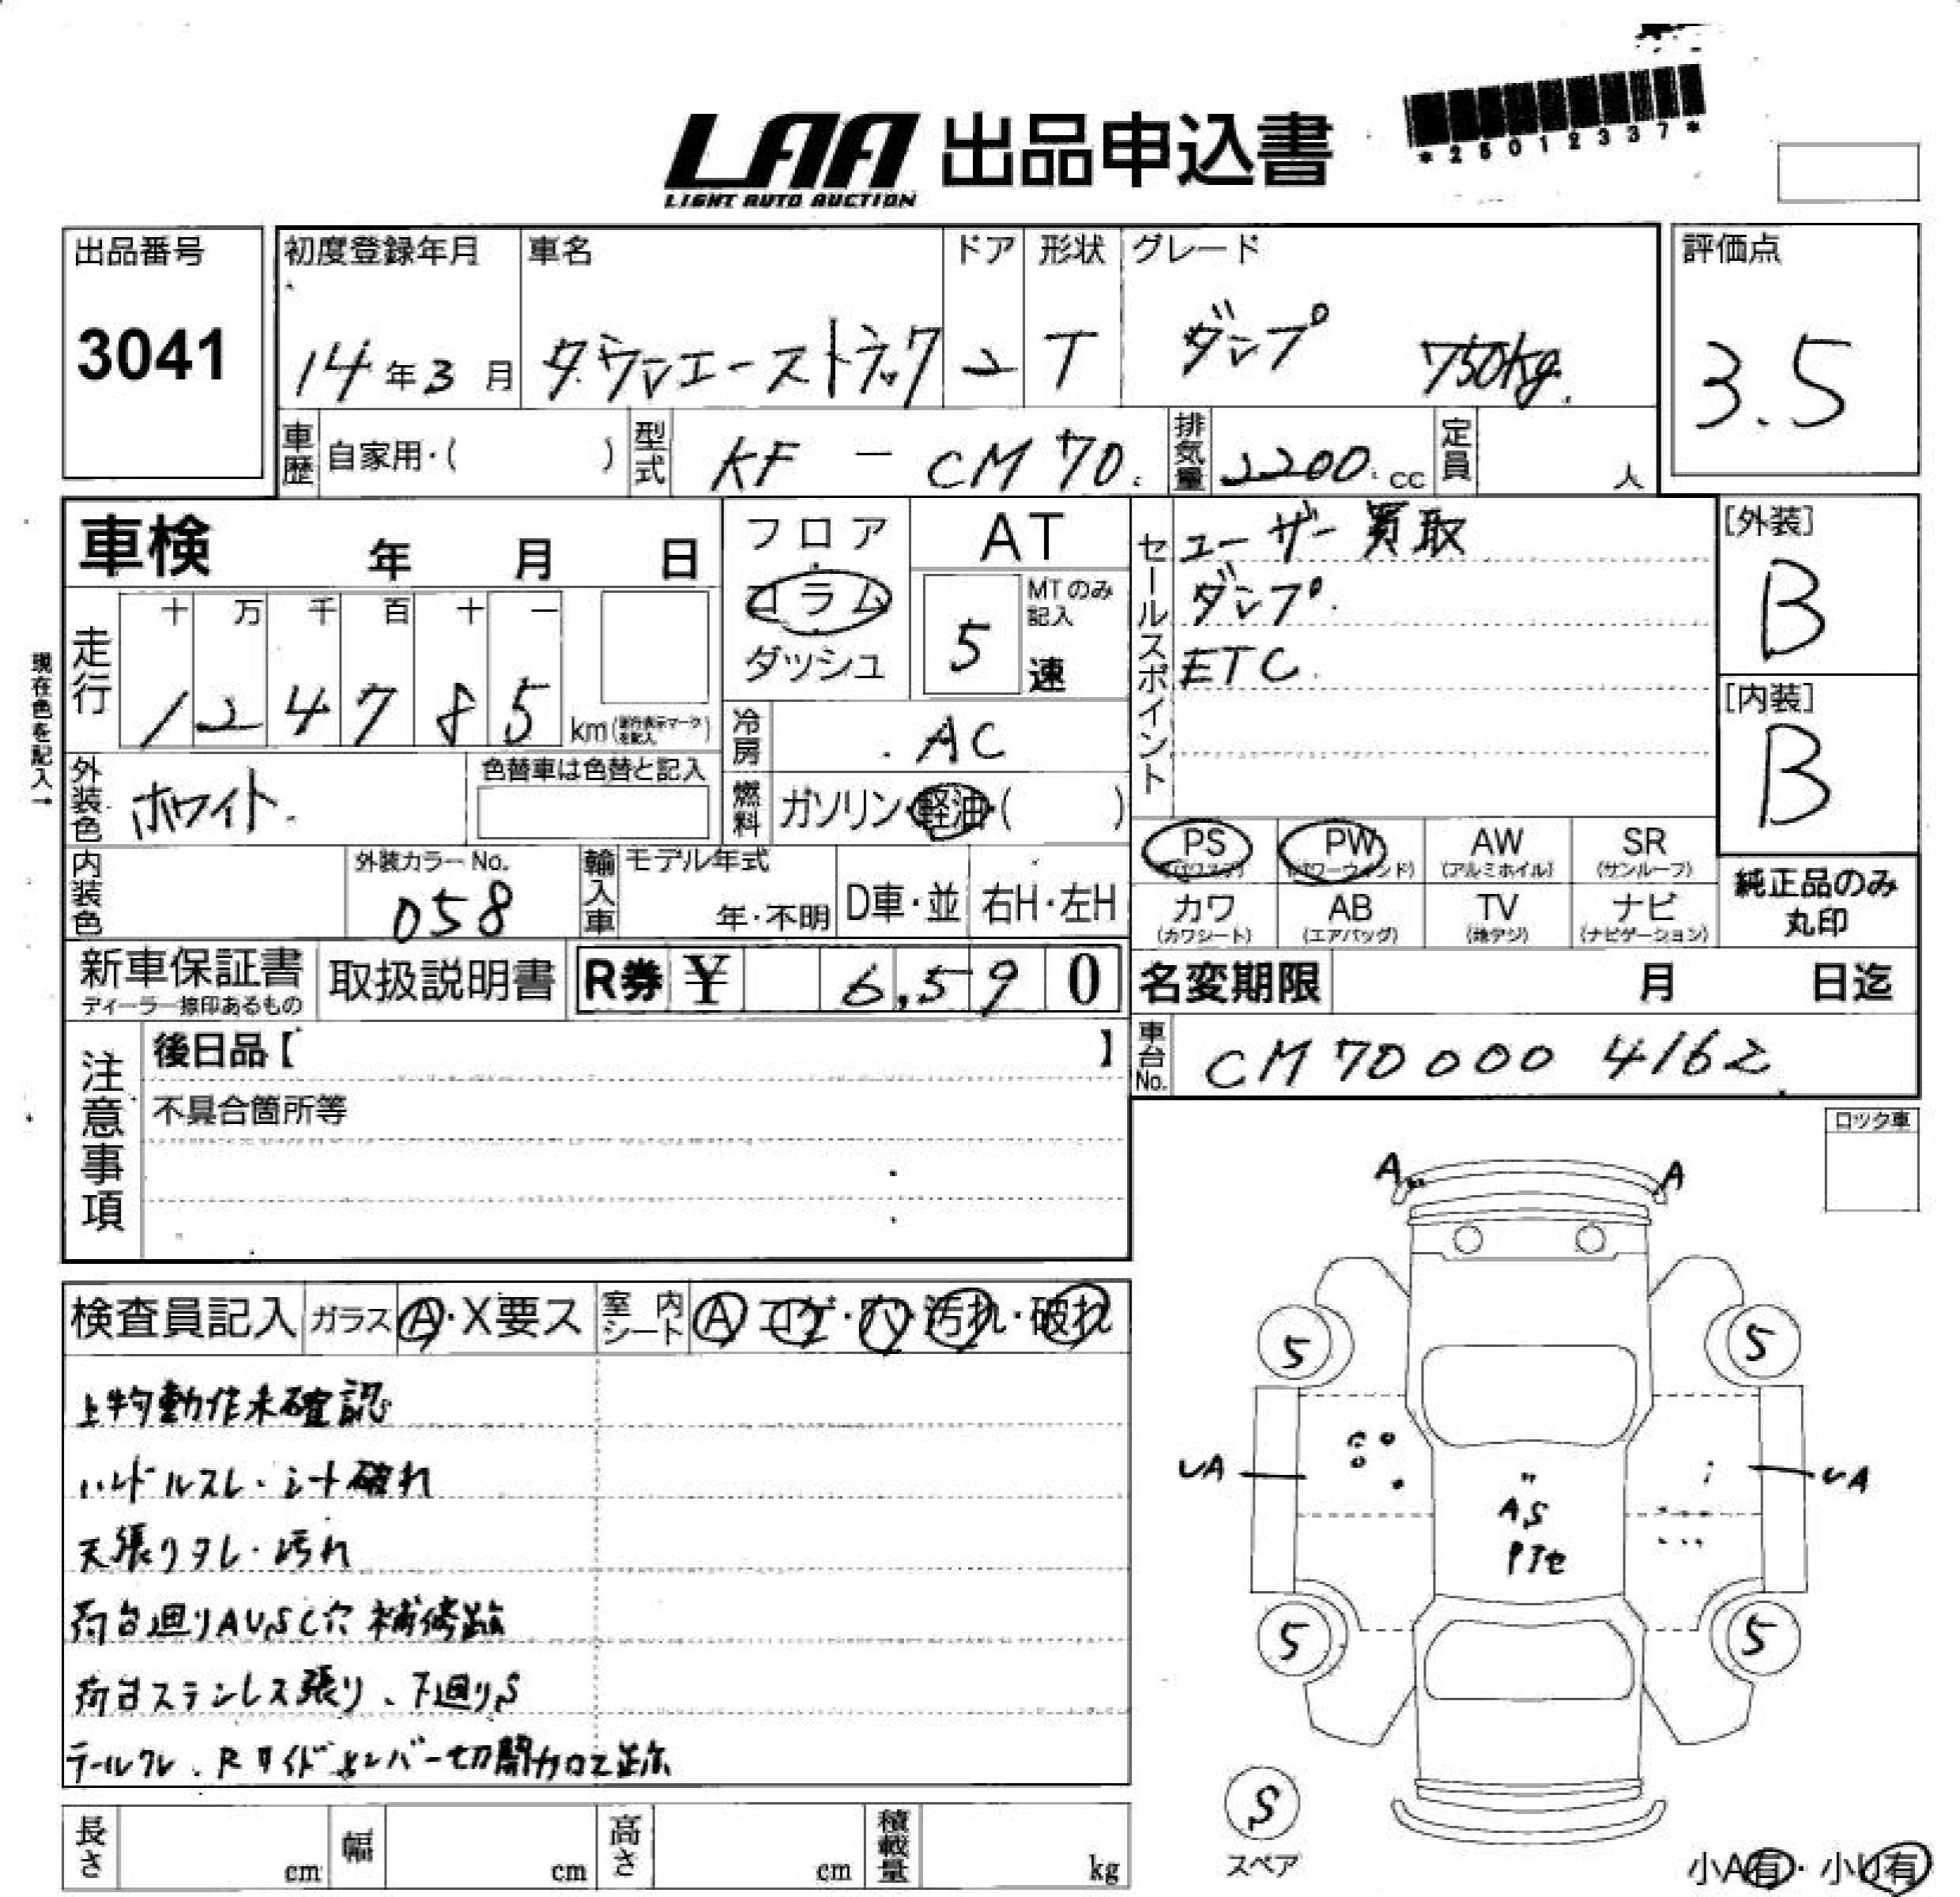 LAA 出品申込書
LIGHT AUTO AUCTION
*25012337*
出品番号
3041
初度登録年月
14年3月
車名
タウンエーストラック
ドア
2
形状
T
グレード
ダンプ 750kg.
評価点
3.5
車歴 自家用・( )
型式 KF - CM70.
排気量 2200.cc
定員 人
車検 年 月 日
フロア
コラム
ダッシュ
AT
MTのみ記入
5 速
セールスポイント
ユーザー買取
ダンプ.
ETC.
[外装]
B
[内装]
B
現在色を記入→
走行 十 万 千 百 十 一
1 2 4 7 8 5 km(走行表示マークを記入)
冷房 AC
外装色 ホワイト.
色替車は色替と記入
燃料 ガソリン・軽油・( )
PS (パワステ)
PW (パワーウィンド)
AW (アルミホイル)
SR (サンルーフ)
カワ (カワシート)
AB (エアバッグ)
TV (地デジ)
ナビ (ナビゲーション)
純正品のみ丸印
内装色
外装カラーNo.
058
輸入車 モデル年式
年・不明
D車・並
右H・左H
新車保証書
ディーラー捺印あるもの
取扱説明書
R券 ¥ 6,590
名変期限 月 日迄
車台No. CM70 000 4162
注意事項
後日品【 】
不具合箇所等
ロック車
検査員記入 ガラス A・X要ス 室内シート A コゲ・穴・汚れ・破れ
上物動作未確認
ハンドルスレ・シート破れ
天張りタレ・汚れ
荷台廻りAUSC穴 補修跡
荷台ステンレス張り、下廻りS
テールワレ、Rサイドメンバー切開加工跡
A A
5 5
UA UA
AS
5 5
S
スペア
長さ cm
幅 cm
高さ cm
積載量 kg
小A有・小U有